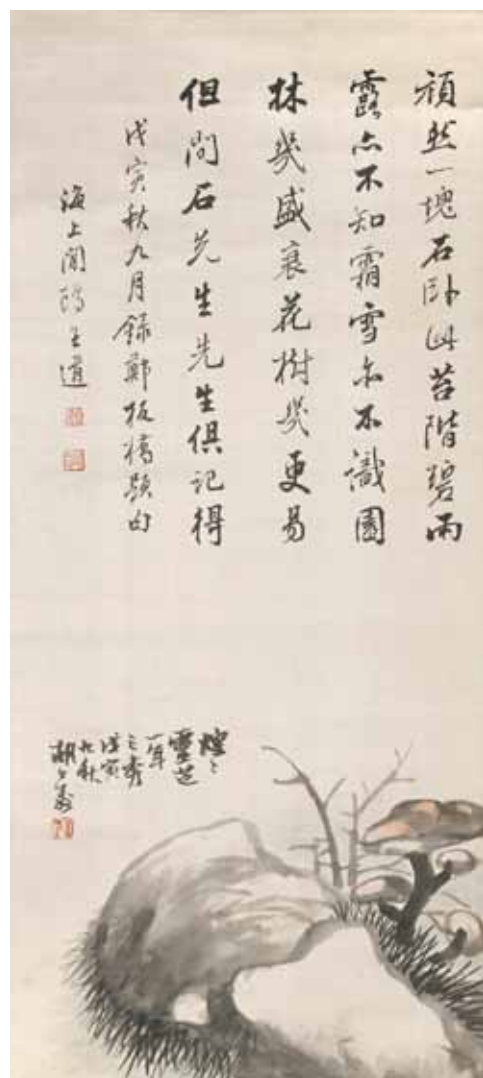 頑然一塊石臥此苔階碧雨
露亦不知霜雪亦不識園
林幾盛衰花樹幾更易
但問石先生先生俱記得
戊寅秋九月錄鄭板橋題句
海上閒鷗王
煌〻
靈芝
一年
三秀
戊寅
九秋
胡公壽